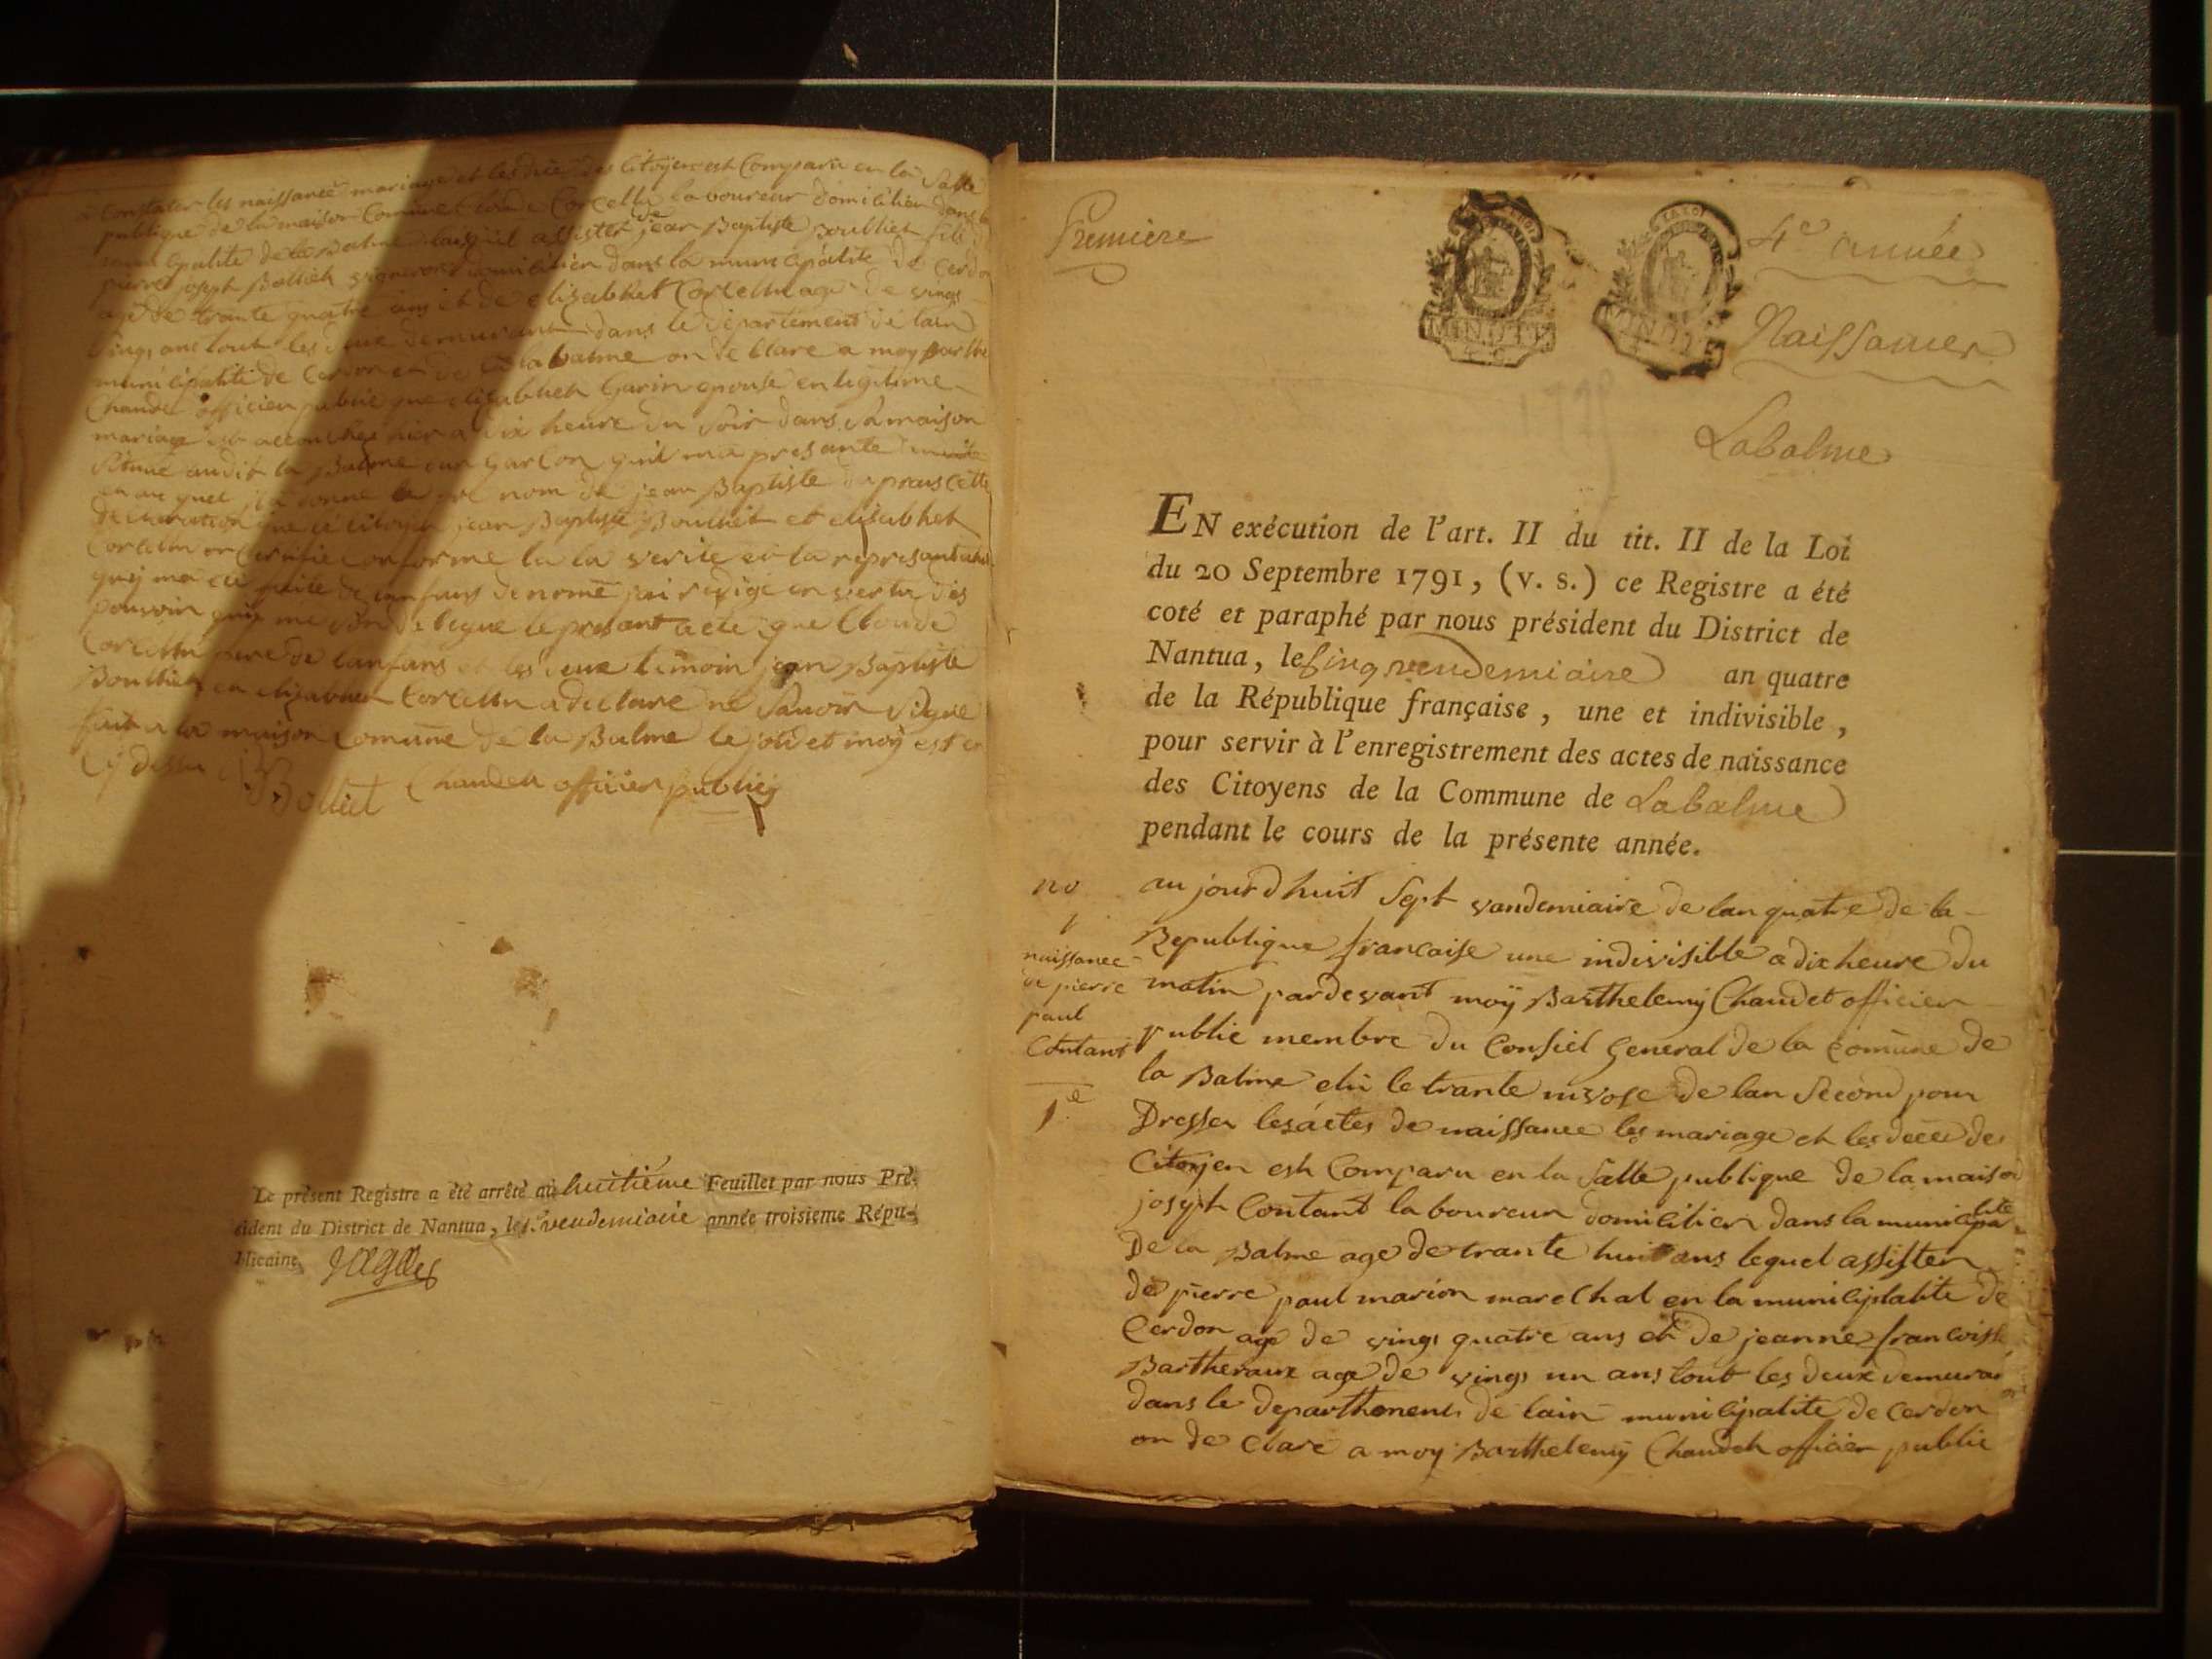 Constater les naissance mariage et les des Citoyens est Comparu en la Salle
publique de la maison Comune Corcelle laboureur domicilier dans la
de la Balme assister de jean Baptiste Boullier fils
pierre joseph vigneron domicilier dans la municipalité de Cerdon
age de trante quatre ans et de elisabhet age de vingt
cinq ans tout les deux demurant dans le departement de lain
municipalité de Cerdon et de la balme on declare a moy
Chaudet officier public que elisabhet Garin epouse en legitime
mariage est accouchee hier a dix heure du Soir dans Sa maison
Situué audit la Balme dun Garcon quil ma presante
auquel il a donné le nom de jean Baptiste dapraus cette
declaration que le Citoyen jean Baptiste Boullier et elisabhet
on Certifie conforme la la verité et la representation
quij ma ete faite de lanfans denomé jai redigé en vertu des
pouvoir quij me sont delegue le presant acte que Claude
pere de lanfans et les deux temoin jean Baptiste
Boullier et elisabhet a declare ne Savoir Signe
fait a la maison Comune de la Balme le jour et moy est an
Cy dessu
Chaudet officier publicq
Le présent Registre a été arrêté au huitième Feuillet par nous Pré-
sident du District de Nantua, le vendemiaire année troisieme Répu-
blicaine,
Première
4e année
Naissances
Labalme
EN exécution de l'art. II du tit. II de la Loi
du 20 Septembre 1791, (v. s.) ce Registre a été
coté et paraphé par nous président du District de
Nantua, le cinq vendemiaire an quatre
de la République française, une et indivisible,
pour servir à l'enregistrement des actes de naissance
des Citoyens de la Commune de Labalme
pendant le cours de la présente année.
no
1
naissance
de pierre
paul
Contant
1e
aujourdhuit Sept vandemiaire de lan quatre de la
Republique francaise une indivisible a dix heure du
matin pardevant moÿ Barthelemij Chaudet officier
public membre du Consiel General de la comune de
la Balme elu le trante nivose de lan Second pour
Dresser les actes de naissance les mariage et les décé des
Citoyen est Comparu en la Salle publique de la maison
joseph Contant laboureur domicilier dans la municipalite
De la Balme age de trante huit ans lequel assister
de pierre paul marion marechal en la municiplalite de
Cerdon age de vingt quatre ans et de jeanne francoise
Bartheraux age de vingt un ans tout les deux demurant
dans le departhement de lain municipalité de Cerdon
on declaré a moy Barthelemij Chaudet officier public